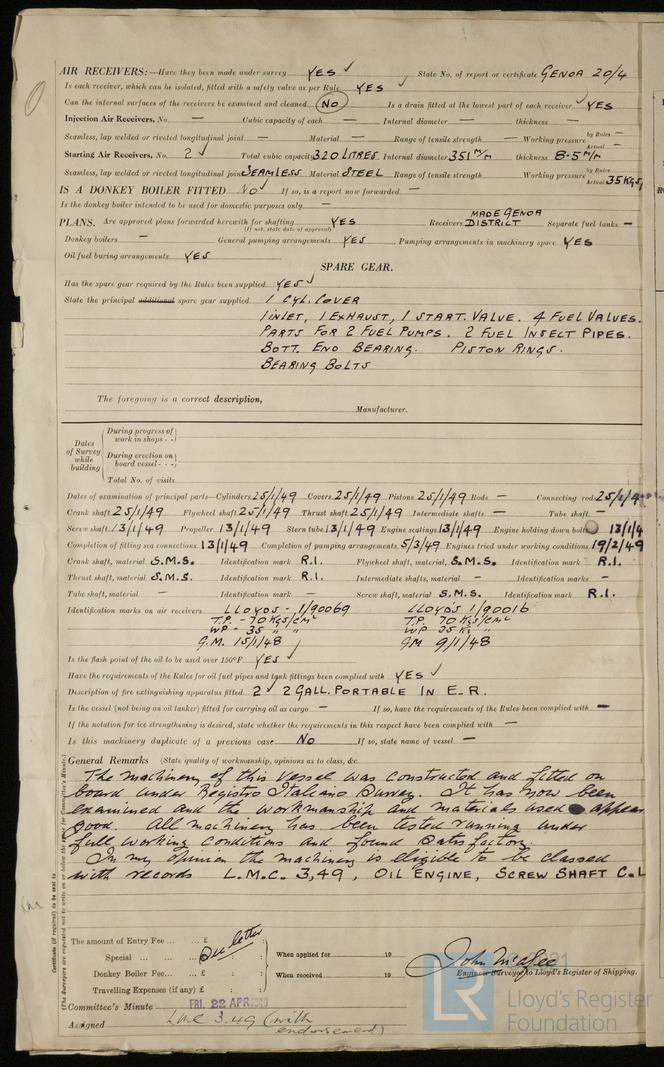 AIR RECEIVERS:—Have they been made under survey YES ✓ State No. of report or certificate GENOA 20/4
Is each receiver, which can be isolated, fitted with a safety valve as per Rule YES ✓
Can the internal surfaces of the receivers be examined and cleaned NO Is a drain fitted at the lowest part of each receiver ✓ YES
Injection Air Receivers, No. — Cubic capacity of each — Internal diameter — thickness —
Seamless, lap welded or riveted longitudinal joint — Material — Range of tensile strength — Working pressure by Rules — Actual —
Starting Air Receivers, No. 2 ✓ Total cubic capacity 320 LITRES Internal diameter 351 M/M thickness 8·5 M/M
Seamless, lap welded or riveted longitudinal joint SEAMLESS Material STEEL Range of tensile strength — Working pressure by Rules Actual 35 KGS
IS A DONKEY BOILER FITTED NO ✓ If so, is a report now forwarded —
Is the donkey boiler intended to be used for domestic purposes only —
PLANS. Are approved plans forwarded herewith for shafting YES Receivers MADE GENOA DISTRICT Separate fuel tanks —
(If not, state date of approval)
Donkey boilers — General pumping arrangements YES Pumping arrangements in machinery space YES
Oil fuel buring arrangements YES
SPARE GEAR.
Has the spare gear required by the Rules been supplied YES ✓
State the principal additional spare gear supplied 1 CYL. COVER
1 INLET, 1 EXHAUST, 1 START. VALVE. 4 FUEL VALVES.
PARTS FOR 2 FUEL PUMPS. 2 FUEL INJECT PIPES.
BOTT. END BEARING. PISTON RINGS.
BEARING BOLTS
The foregoing is a correct description,
Manufacturer.
Dates of Survey while building
During progress of work in shops - -
During erection on board vessel - - -
Total No. of visits
Dates of examination of principal parts—Cylinders 25/1/49 Covers 25/1/49 Pistons 25/1/49 Rods — Connecting rods 25/1/4
Crank shaft 25/1/49 Flywheel shaft 25/1/49 Thrust shaft 25/1/49 Intermediate shafts — Tube shaft —
Screw shaft 13/1/49 Propeller 13/1/49 Stern tube 13/1/49 Engine seatings 13/1/49 Engine holding down bolts 13/1/4
Completion of fitting sea connections 13/1/49 Completion of pumping arrangements 5/3/49 Engines tried under working conditions 19/2/49
Crank shaft, material S.M.S. Identification mark R.I. Flywheel shaft, material S.M.S. Identification mark R.I.
Thrust shaft, material S.M.S. Identification mark R.I. Intermediate shafts, material — Identification marks —
Tube shaft, material — Identification mark — Screw shaft, material S.M.S. Identification mark R.I.
Identification marks on air receivers LLOYDS - 1/90069 LLOYD'S 1/90016
T.P. - 70 KGS/CM² T.P. 70 KGS/CM²
WP - 35 " " WP 35 KGS
G.M. 15/1/48 GM 9/1/48
Is the flash point of the oil to be used over 150°F YES ✓
Have the requirements of the Rules for oil fuel pipes and tank fittings been complied with YES ✓
Description of fire extinguishing apparatus fitted 2 ✓ 2 GALL. PORTABLE IN E.R.
Is the vessel (not being an oil tanker) fitted for carrying oil as cargo — If so, have the requirements of the Rules been complied with —
If the notation for ice strengthening is desired, state whether the requirements in this respect have been complied with —
Is this machinery duplicate of a previous case NO If so, state name of vessel —
General Remarks (State quality of workmanship, opinions as to class, &c.
The machinery of this vessel was constructed and fitted on
board under Registro Italiano Survey. It has now been
examined and the workmanship and materials used appear
good. All machinery has been tested running under
full working conditions and found satisfactory.
In my opinion the machinery is eligible to be classed
with records L.M.C. 3,49, OIL ENGINE, SCREW SHAFT C.L
Certificate (if required) to be sent to
(The Surveyors are requested not to write on or below the space for Committee's Minute.)
The amount of Entry Fee ... £ : :
Special ... ... £ : : See letter
Donkey Boiler Fee ... £ : :
Travelling Expenses (if any) £ : :
When applied for 19
When received 19
John McAfee
Engineer Surveyor to Lloyd's Register of Shipping.
Committee's Minute FRI. 22 APR 1949
Assigned LMC 3.49 (with
endorsement)
LR
Lloyd's Register
Foundation